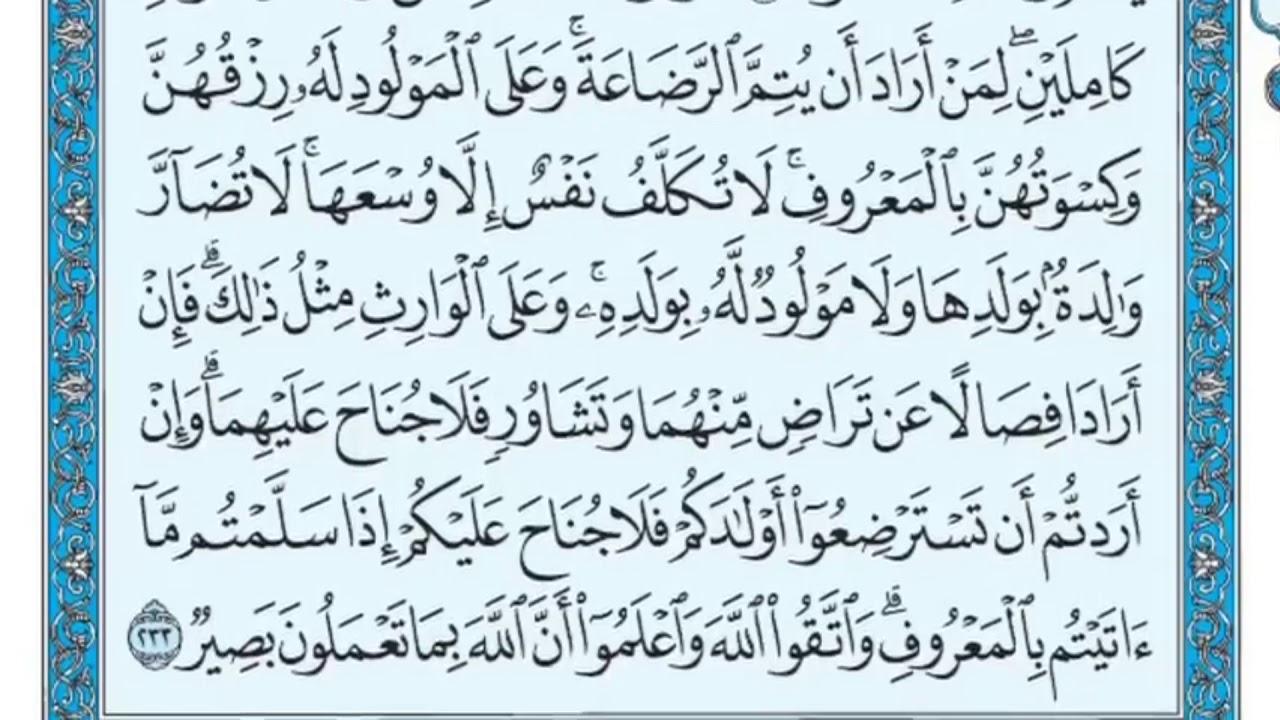 كَامِلَيْنِۖ لِمَنْ أَرَادَ أَن يُتِمَّ ٱلرَّضَاعَةَۚ وَعَلَى ٱلْمَوْلُودِ لَهُۥ رِزْقُهُنَّ
وَكِسْوَتُهُنَّ بِٱلْمَعْرُوفِۚ لَا تُكَلَّفُ نَفْسٌ إِلَّا وُسْعَهَاۚ لَا تُضَآرَّ
وَٰلِدَةُۢ بِوَلَدِهَا وَلَا مَوْلُودٌ لَّهُۥ بِوَلَدِهِۦۚ وَعَلَى ٱلْوَارِثِ مِثْلُ ذَٰلِكَۗ فَإِنْ
أَرَادَا فِصَالًا عَن تَرَاضٍ مِّنْهُمَا وَتَشَاوُرٍ فَلَا جُنَاحَ عَلَيْهِمَاۗ وَإِنْ
أَرَدتُّمْ أَن تَسْتَرْضِعُوٓا۟ أَوْلَٰدَكُمْ فَلَا جُنَاحَ عَلَيْكُمْ إِذَا سَلَّمْتُم مَّآ
ءَاتَيْتُم بِٱلْمَعْرُوفِۗ وَٱتَّقُوا۟ ٱللَّهَ وَٱعْلَمُوٓا۟ أَنَّ ٱللَّهَ بِمَا تَعْمَلُونَ بَصِيرٌ ٢٣٣